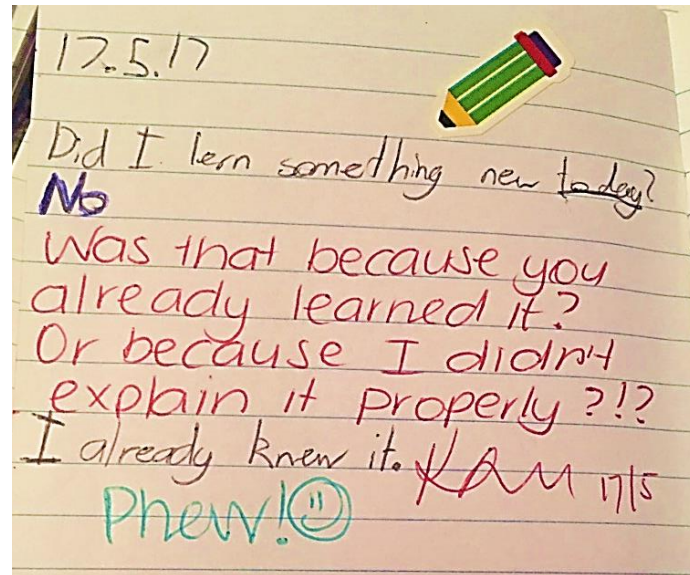 17.5.17
Did I lern something new today?
No
Was that because you
already learned it?
Or because I didn't
explain it properly?!?
I already knew it. KAM 17/5
Phew!